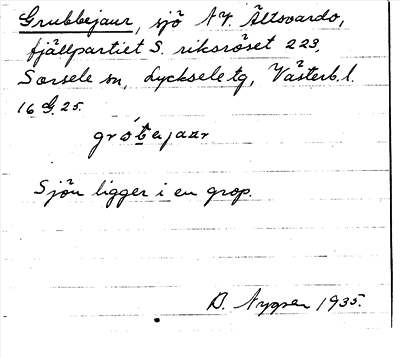 Grubbejaur, sjö NV. Ältsvardo,
fjällpartiet S. riksröset 223,
Sorsele sn, Lycksele tg, Västerb. l.
16 G. 25.
grótejaur
Sjön ligger i en grop.
B. Nygren 1935.